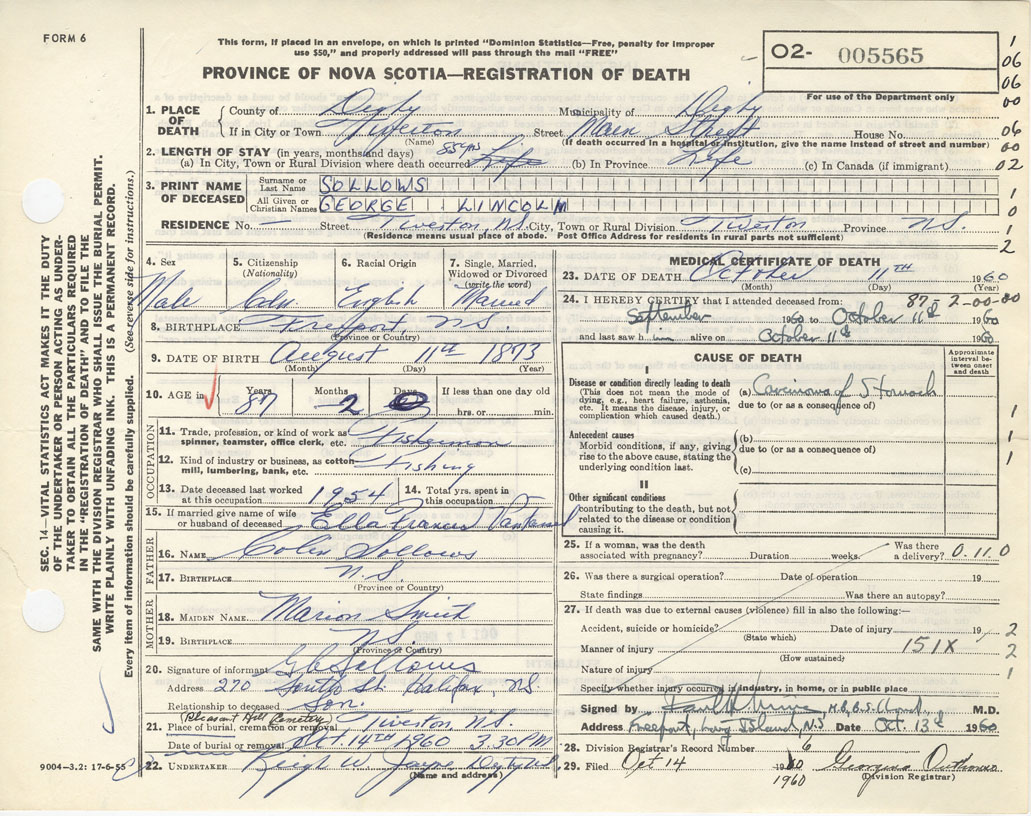 FORM 6
This form, if placed in an envelope, on which is printed "Dominion Statistics—Free, penalty for improper
use $50," and properly addressed will pass through the mail "FREE"
PROVINCE OF NOVA SCOTIA—REGISTRATION OF DEATH
02- 005565
For use of the Department only
1. PLACE OF DEATH
County of Digby Municipality of Digby
If in City or Town Tiverton Street Main Street House No.
(Name) (If death occurred in a hospital or institution, give the name instead of street and number)
2. LENGTH OF STAY (in years, months and days) 85 yrs
(a) In City, Town or Rural Division where death occurred Life (b) In Province Life (c) In Canada (if immigrant)
3. PRINT NAME OF DECEASED
Surname or Last Name SOLLOWS
All Given or Christian Names GEORGE LINCOLN
RESIDENCE No. — Street Tiverton, N.S. City, Town or Rural Division Tiverton Province N.S.
(Residence means usual place of abode. Post Office Address for residents in rural parts not sufficient)
4. Sex Male
5. Citizenship (Nationality) Cdn.
6. Racial Origin English
7. Single, Married, Widowed or Divorced (write the word) Married
8. BIRTHPLACE Freeport, N.S.
(Province or Country)
9. DATE OF BIRTH August 11th 1873
(Month) (Day) (Year)
10. AGE in Years 87 Months 2 Days 0 If less than one day old hrs. or min.
OCCUPATION
11. Trade, profession, or kind of work as spinner, teamster, office clerk, etc. Fisherman
12. Kind of industry or business, as cotton mill, lumbering, bank, etc. Fishing
13. Date deceased last worked at this occupation 1954
14. Total yrs. spent in this occupation
15. If married give name of wife or husband of deceased Ella Frances
FATHER
16. NAME Colin Sollows
17. BIRTHPLACE N.S.
(Province or Country)
MOTHER
18. MAIDEN NAME Marion Smith
19. BIRTHPLACE N.S.
(Province or Country)
20. Signature of informant G B Sollows
Address 270 South St. Halifax, N.S.
Relationship to deceased Son.
21. Place of burial, cremation or removal (Pleasant Hill Cemetery) Tiverton, N.S.
Date of burial or removal Oct. 14TH 1960 3.30 PM
22. UNDERTAKER W. Jayne
(Name and address)
9004-3.2: 17-6-55
MEDICAL CERTIFICATE OF DEATH
23. DATE OF DEATH October 11TH 1960
(Month) (Day) (Year)
24. I HEREBY CERTIFY that I attended deceased from: 87- 2-00-00
September 1960 to October 11th 1960
and last saw him alive on October 11th 1960
CAUSE OF DEATH
Approximate interval between onset and death
I
Disease or condition directly leading to death
(This does not mean the mode of dying, e.g., heart failure, asthenia, etc. It means the disease, injury, or complication which caused death.)
(a) Carcinoma of Stomach
due to (or as a consequence of)
Antecedent causes
Morbid conditions, if any, giving rise to the above cause, stating the underlying condition last.
(b)
due to (or as a consequence of)
(c)
II
Other significant conditions
contributing to the death, but not related to the disease or condition causing it.
25. If a woman, was the death associated with pregnancy? Duration weeks. Was there a delivery? 0.11.0
26. Was there a surgical operation? Date of operation 19
State findings Was there an autopsy?
27. If death was due to external causes (violence) fill in also the following:—
Accident, suicide or homicide? Date of injury 19
(State which)
Manner of injury 151X
(How sustained)
Nature of injury
Specify whether injury occurred in industry, in home, or in public place
Signed by M.D.
Address Freeport, Long Island, N.S. Date Oct. 13th 1960
28. Division Registrar's Record Number 6
29. Filed Oct 14 1960 Georgina
1960 (Division Registrar)
SEC. 14—VITAL STATISTICS ACT MAKES IT THE DUTY
OF THE UNDERTAKER OR PERSON ACTING AS UNDER-
TAKER TO OBTAIN ALL THE PARTICULARS REQUIRED
IN THE "REGISTRATION OF DEATH" AND TO FILE THE
SAME WITH THE DIVISION REGISTRAR WHO SHALL ISSUE THE BURIAL PERMIT.
WRITE PLAINLY WITH UNFADING INK. THIS IS A PERMANENT RECORD.
Every item of information should be carefully supplied. (See reverse side for instructions.)
1
06
06
00
06
00
02
1
0
1
2
1
1
1
2
2
1